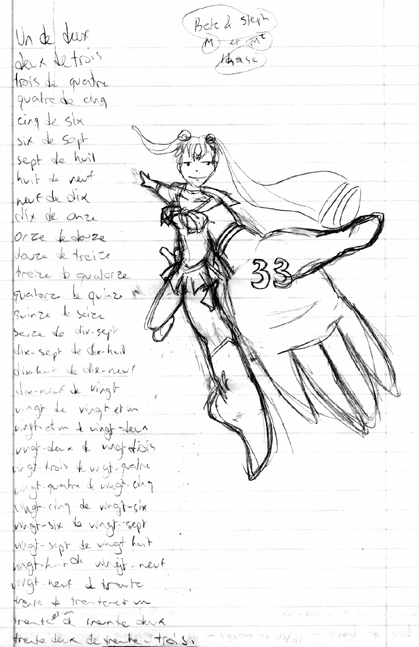 Bete à steph
M et M²
Phase
Un de deux
deux de trois
trois de quatre
quatre de cinq
cinq de six
six de sept
sept de huit
huit de neuf
neuf de dix
dix de onze
onze de douze
douze de treize
treize de quatorze
quatorze de quinze
quinze de seize
seize de dix-sept
dix-sept de dix-huit
dix-huit de dix-neuf
dix-neuf de vingt
vingt de vingt et un
vingt et un de vingt-deux
vingt-deux de vingt-trois
vingt-trois de vingt-quatre
vingt-quatre de vingt-cinq
vingt-cinq de vingt-six
vingt-six de vingt-sept
vingt-sept de vingt huit
vingt-huit de vingt-neuf
vingt-neuf de trente
trente de trente et un
trente et un de trente deux
trente deux de trente-trois.
33